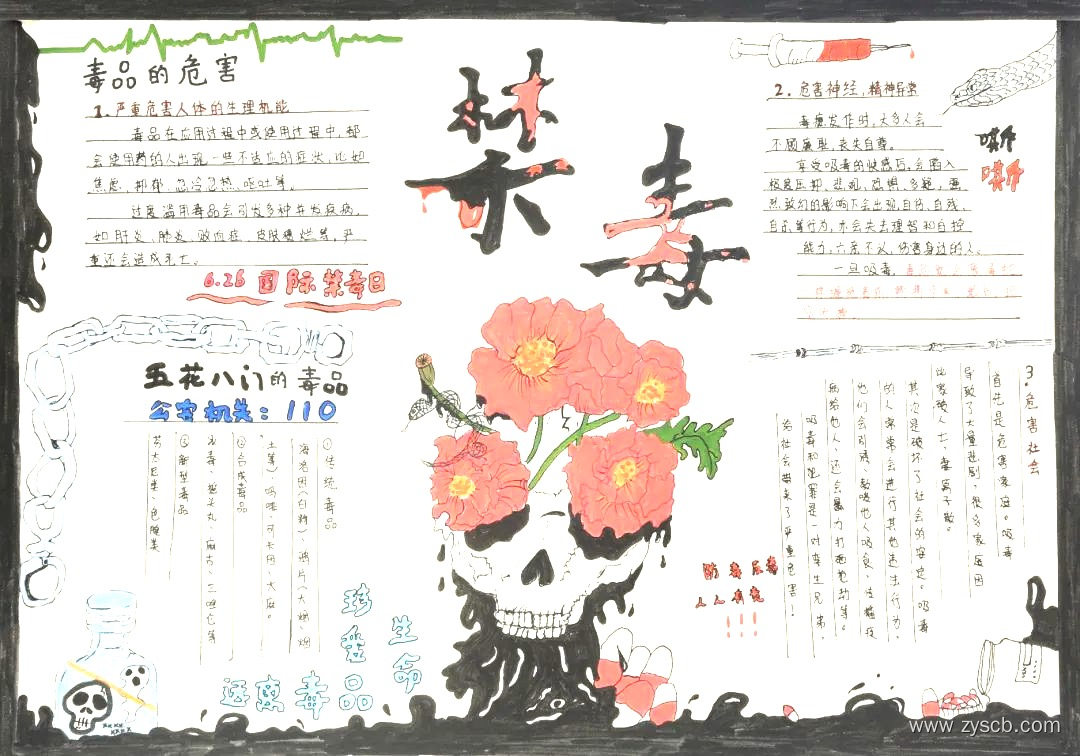 毒品的危害
1.严重危害人体的生理机能
毒品在应用过程中或使用过程中,都
会使用药的人出现一些不适应的症状,比如
焦虑、抑郁、忽冷忽热、呕吐等。
过度滥用毒品会引发多种并发疾病,
如肝炎、肺炎、败血症、皮肤溃烂等,严
重还会造成死亡。
6.26国际禁毒日
禁毒
2.危害神经,精神异常
毒瘾发作时,大多人会
不顾廉耻,丧失自尊。
享受吸毒的快感后,会陷入
极度压抑、悲观、恐惧、多疑,
自杀等行为,亦会失去理智和自控
能力,六亲不认,伤害身边的人。
一旦吸毒,
五花八门的毒品
公安机关:110
①传统毒品
海洛因(白粉)、鸦片(大烟、烟
土等)、吗啡、可卡因、大麻。
②合成毒品
冰毒、摇头丸、麻古、三唑仑等
③新型毒品
3.危害社会
首先是危害家庭。吸毒
导致了大量悲剧,很多家庭因
此家破人亡、妻离子散。
其次是破坏了社会的安定。吸毒
的人常常会进行其他违法行为。
吸毒和犯罪是一对孪生兄弟,
给社会带来了严重危害!
防毒反毒
人人有责
!!!
珍爱生命
远离毒品
www.zyscb.com